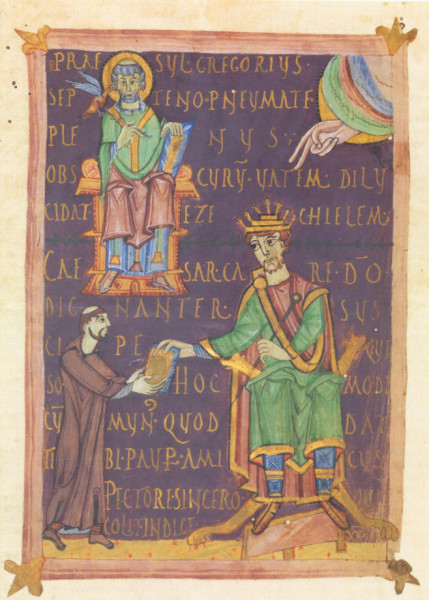 PRAE SYL·GREGORIVS·
SEP TENO·PNEYMATE
PLE NYS;
OBS CYRȲ·VATEM·DILY
CIDAT EZE CHIELEM;
CAE SAR·CA RE·DŌ
DIG NANTER· SYS
CI PE
HOC MODI
CȲ MYN QVOD DAT
TI BI·PAVP̄·AMI CVS
PECTORE·SINCERO